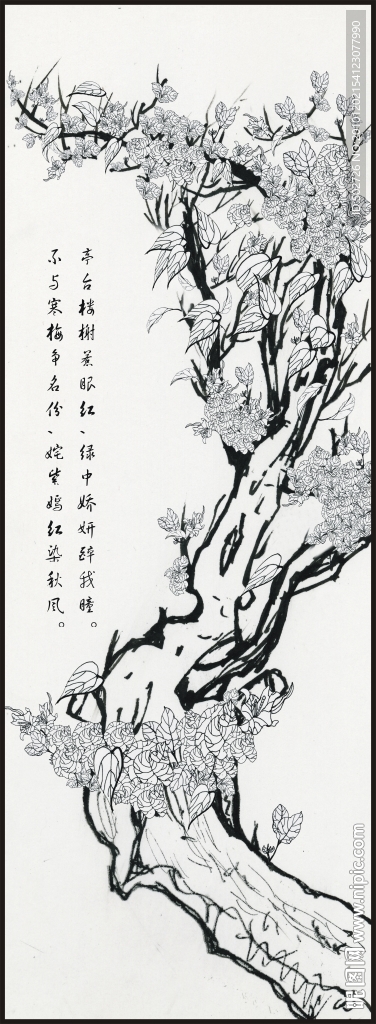 亭台楼榭蒸眼红、绿中娇妍醉我瞳。
不与寒梅争名份、姹紫嫣红染秋风。
昵图网 www.nipic.com